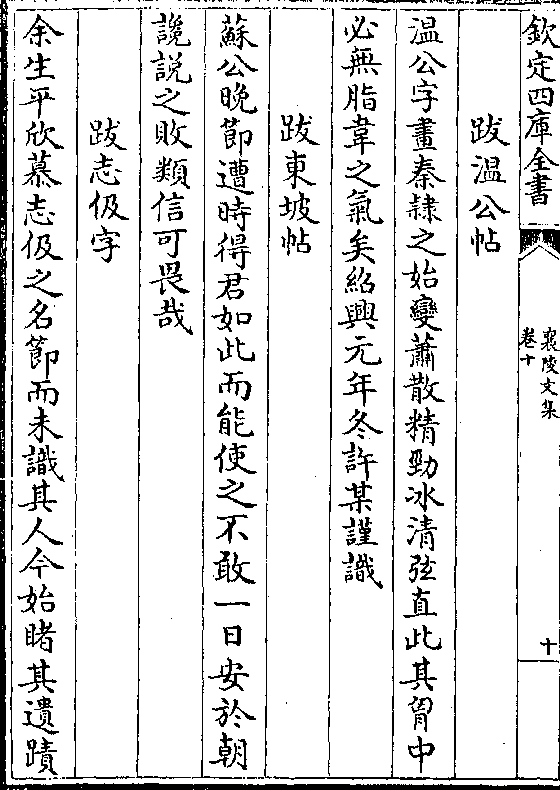 欽定四庫全書
襄陵文集
卷十
十
跋溫公帖
溫公字畫秦隷之始變蕭散精勁冰清弦直此其胷中
必無脂韋之氣矣紹興元年冬許某謹識
跋東坡帖
蘇公晩節遭時得君如此而能使之不敢一日安於朝
讒説之敗類信可畏哉
跋志伋字
余生平欣慕志伋之名節而未識其人今始睹其遺蹟